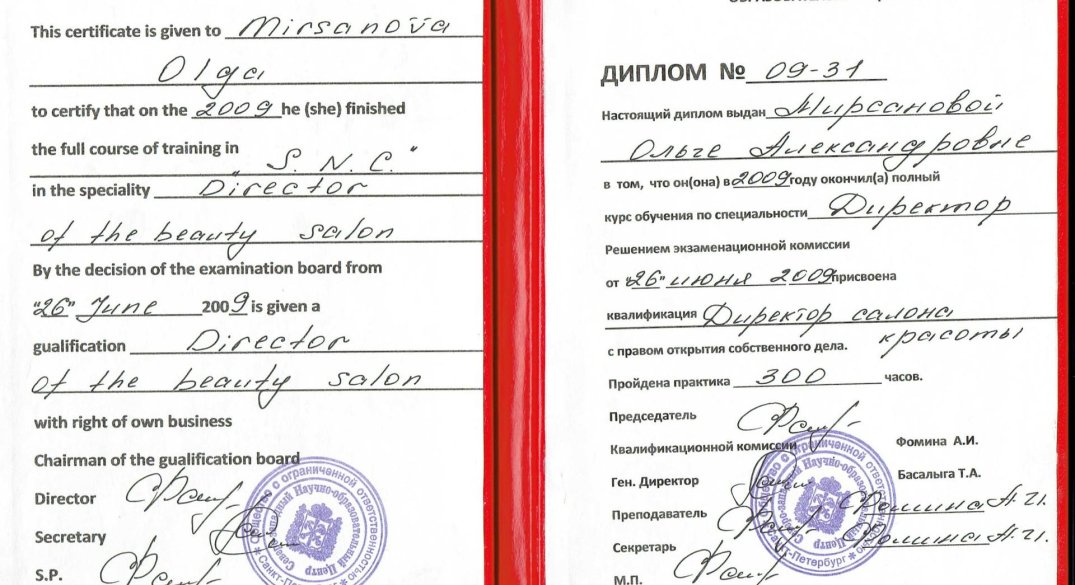 This certificate is given to Mirsanova
Olga
to certify that on the 2009 he (she) finished
the full course of training in
"S. N. C."
in the speciality Director
of the beauty salon
By the decision of the examination board from
"26" June 2009 is given a
gualification Director
of the beauty salon
with right of own business
Chairman of the gualification board
Director
Secretary
S.P.
ДИПЛОМ № 09-31
Настоящий диплом выдан Мирсановой
Ольге Александровне
в том, что он(она) в 2009 году окончил(а) полный
курс обучения по специальности Директор
Решением экзаменационной комиссии
от "26" июня 2009 присвоена
квалификация Директор салона
красоты
с правом открытия собственного дела.
Пройдена практика 300 часов.
Председатель
Квалификационной комиссии Фомина А.И.
Ген. Директор Басалыга Т.А.
Преподаватель Фомина А.И.
Секретарь Фомина А.И.
М.П.